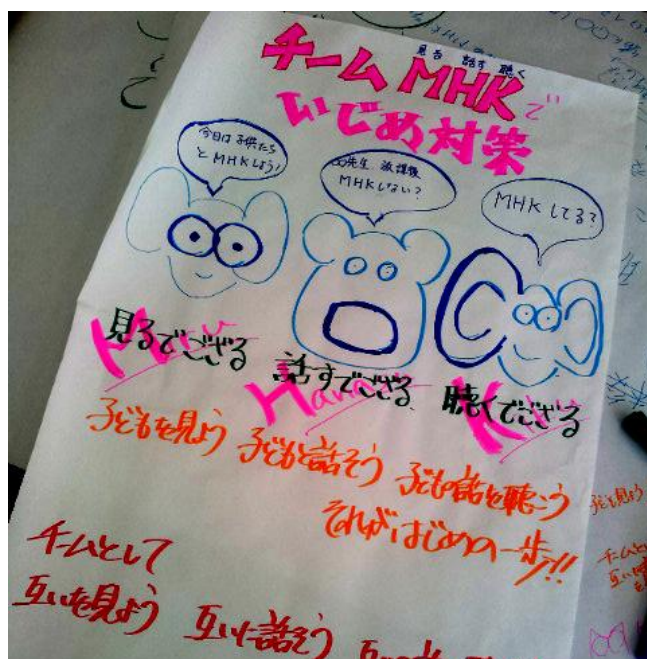 見る 話す 聴く
チーム MHKで
いじめ対策
今日は子供たち
とMHKしよう!
先生、放課後
MHKしない?
MHKしてる?
見るでござる
話すでござる
聴くでござる
子どもを見よう 子どもと話そう 子どもの話を聴こう
それがはじめの一歩!!
チームとして
互いを見よう 互いに話そう
子どもを見よう